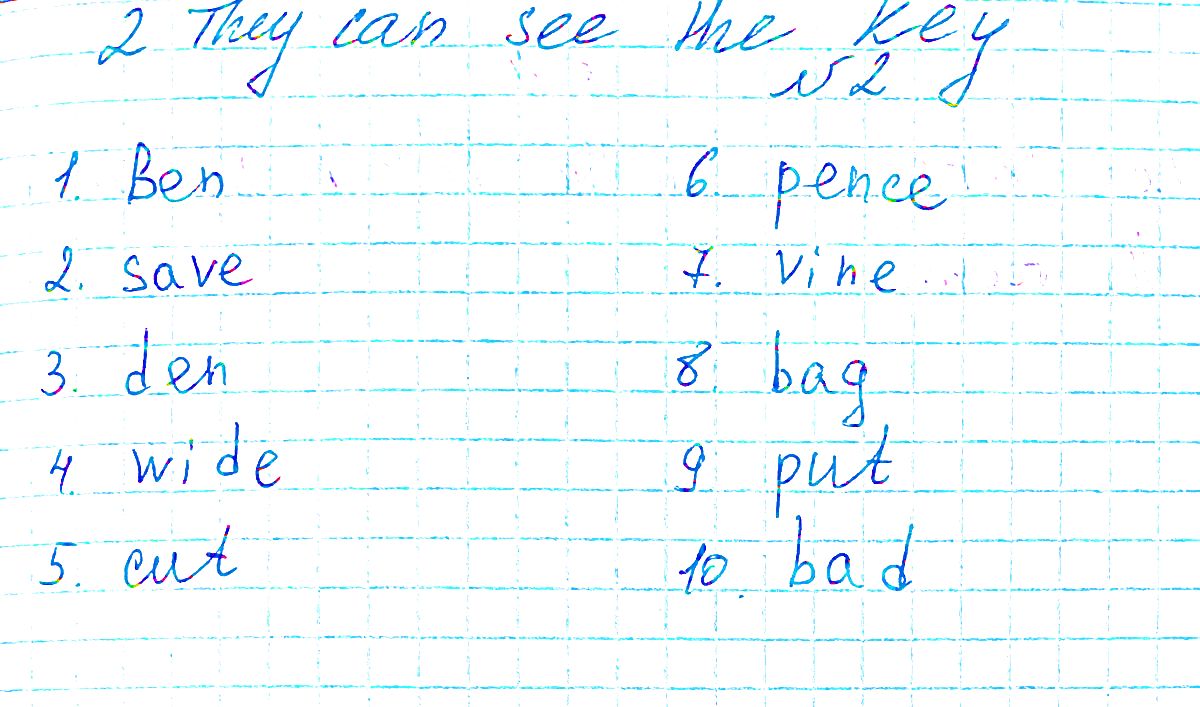 2 They can see the key
№2
1. Ben 6. pence
2. save 7. vine
3. den 8. bag
4. wide 9 put
5. cut 10. bad